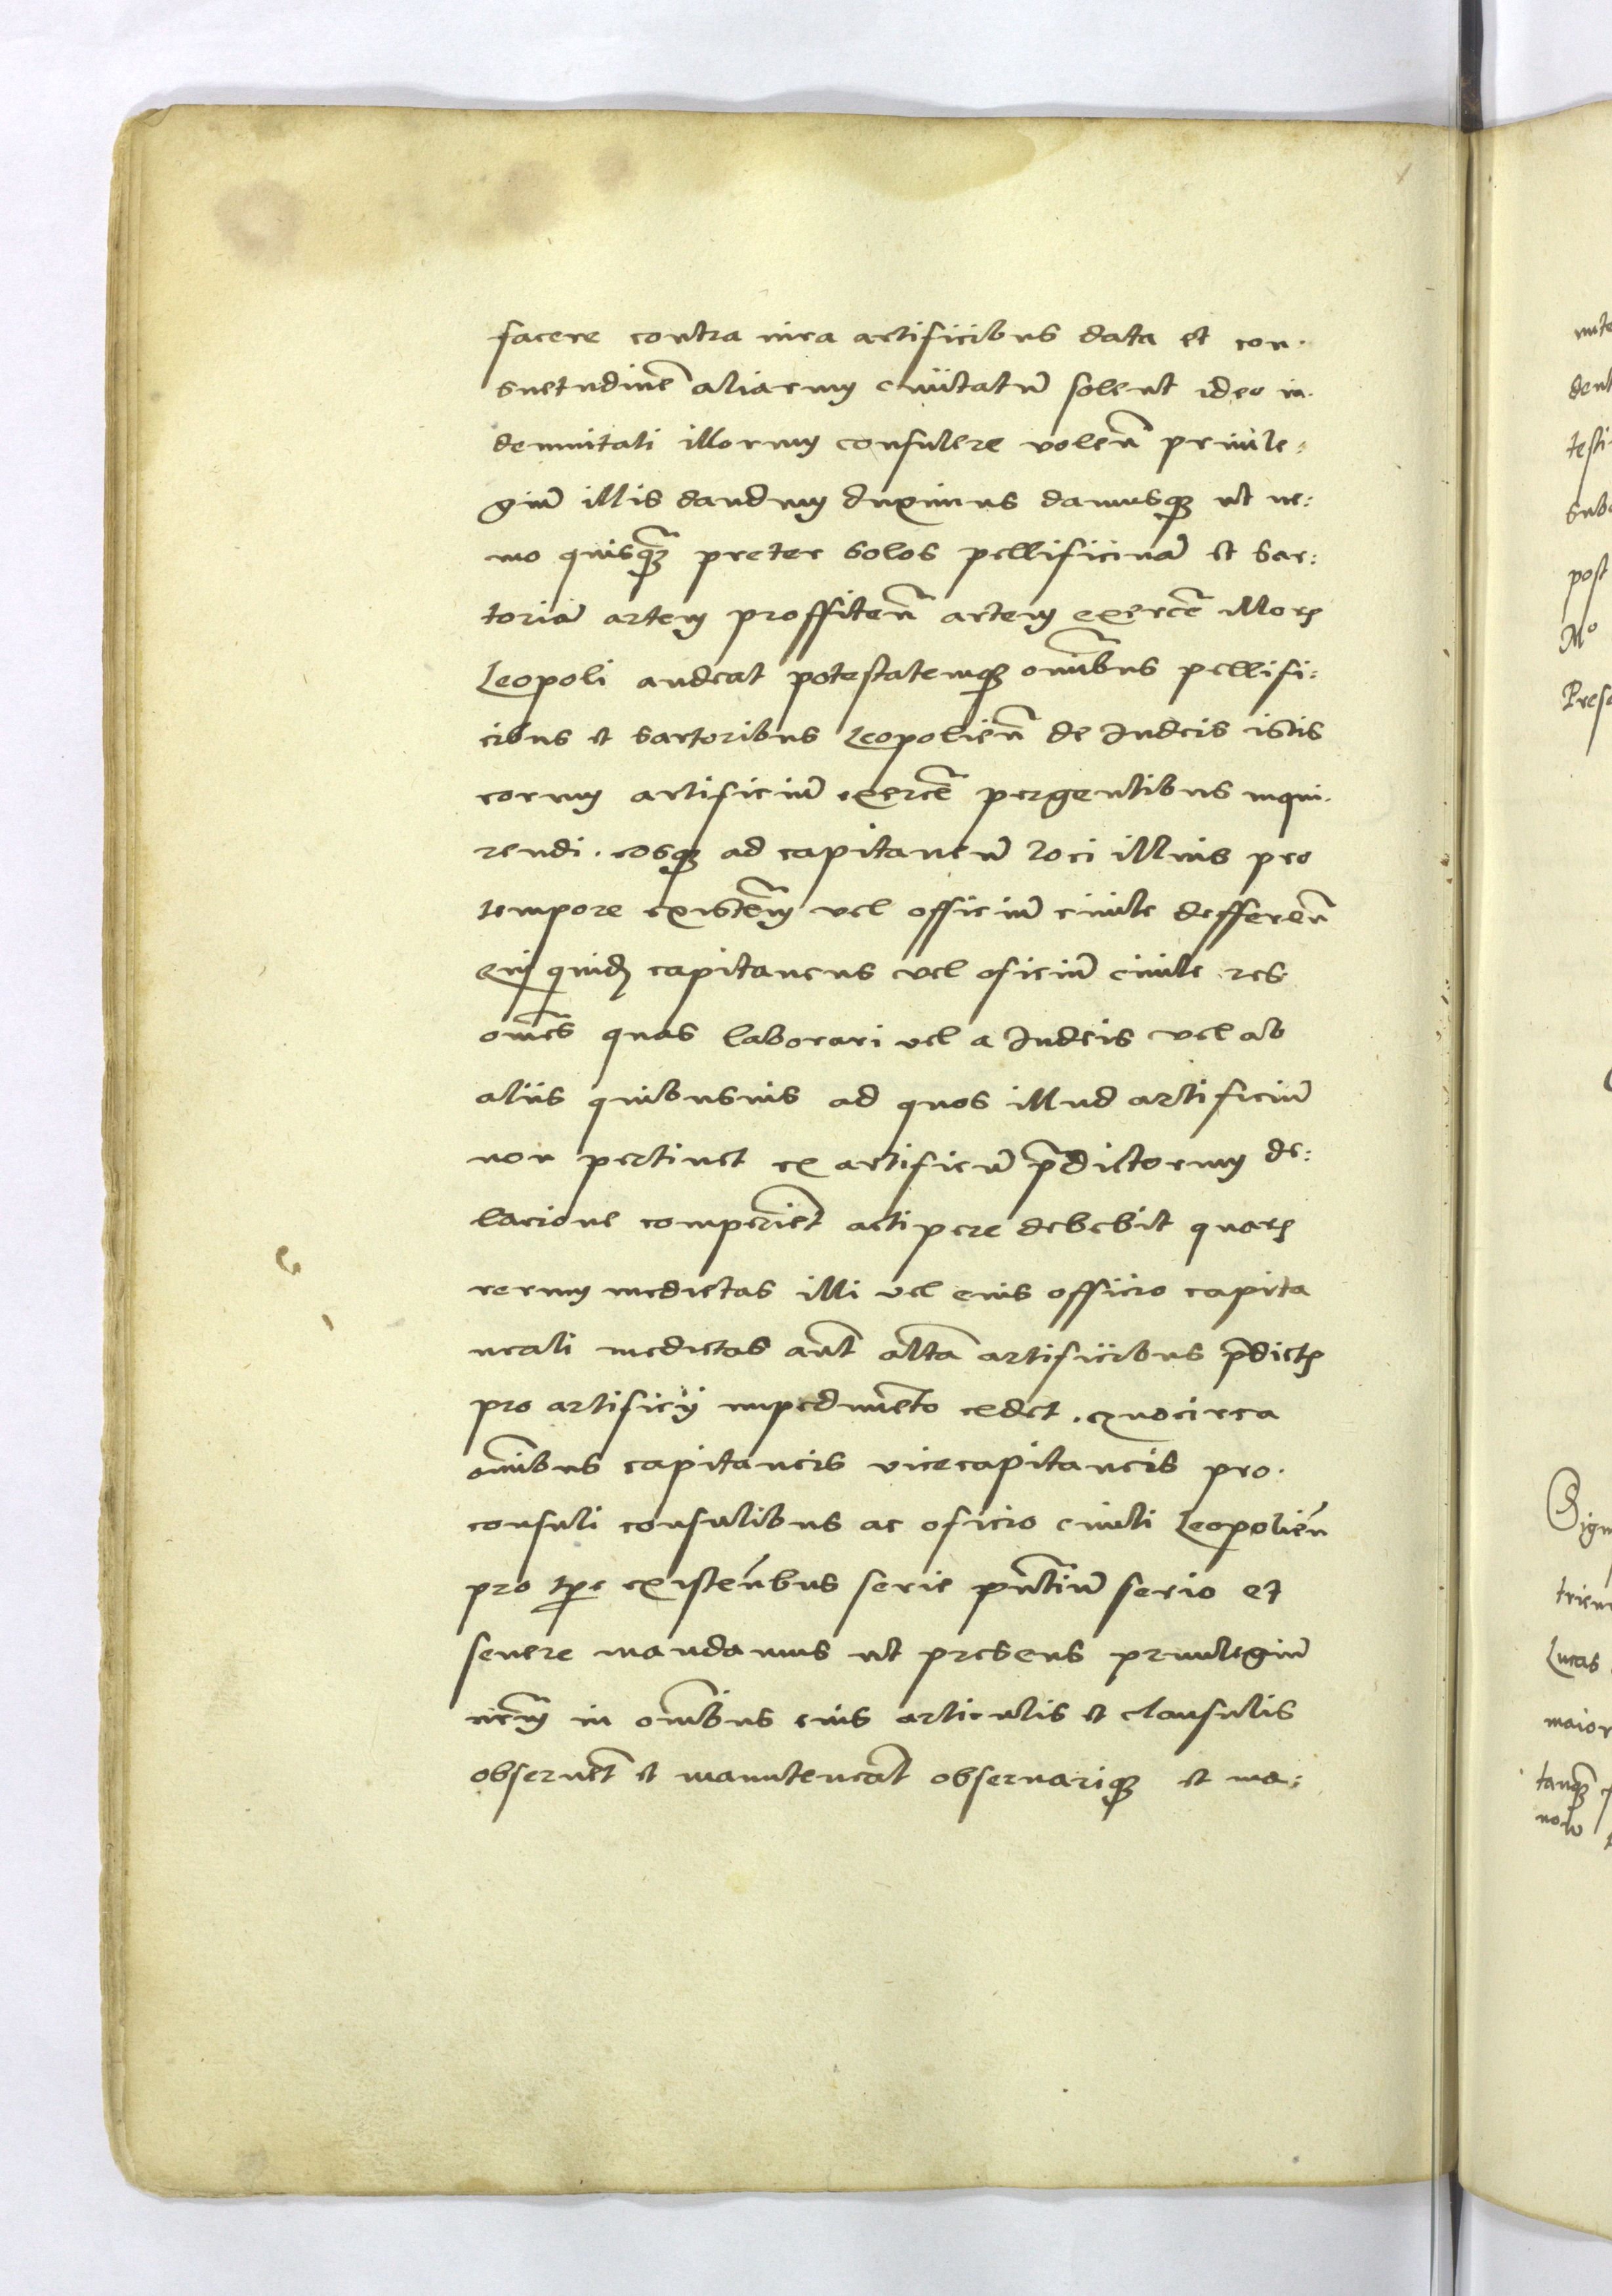 facere contra iura artificibus data et con.
suetudinē aliarum ciuitatū solent ideo in.
demnitati illorum consulere volen̄ priuile:
giū illis dandum duximus damusq; ut ne:
mo quisq̄; preter solos pellificinā et sar:
toriā artem proffiten̄ artem exercē illoꝝ
Leopoli audeat potestatemq; om̄ibus pellifi:
cibus et sartoribus Leopolien̄ de Iudeis istis
eorum artificiū exercē pergentibus inqui.
rendi. eosq; ad capitaneū loci illius pro
tempore existēm vel officiū ciuile defferen̄
capitaneus vel oficiū ciuile res
om̄es quas laborari vel a Iudeis vel ab
aliis quibusuis ad quos illud artificiū
non pertinet ex artificū p̄dictorum de:
lacione comperiet̄ accipere debebit quaꝝ
rerum medietas illi vel eius officio capita
neali medietas aut̄ altā artificibus p̄dictꝭ
pro artificij impedimēto cedet. Quocirca
om̄ibus capitaneis vicecapitaneis pro.
consuli consulibus ac oficio ciuili Leopolien̄
pro tp̄e existen̄bus serie pn̄tiū serio et
seuere mandamus ut presens priuilegiū
nr̄m in om̄ibus eius articulis et clausulis
obseruēt et manuteneāt obseruariq; et ma:
dent
testi
post
Mo
Pres
Sign
Lucas
maior
tanq̄;